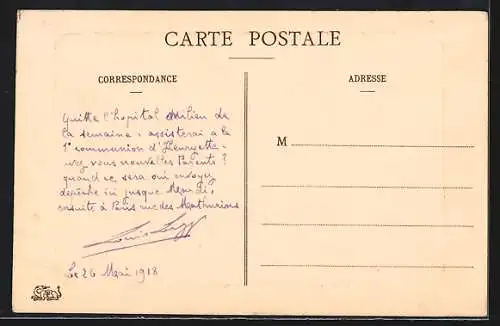 CARTE POSTALE
CORRESPONDANCE
ADRESSE
M
quitte l'hopital Milieu de
la semaine. assisterai a la
1e communion d'Henryette.
avez vous nouvelles Parents ?
quand ce sera oui envoyez
dépêche ici jusque Mardi,
ensuite à Paris rue des Mathurins
Louis
Le 26 Mai 1918